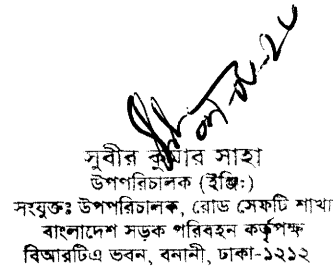 সুবীর কুমার সাহা
উপপরিচালক (ইঞ্জি:)
সংযুক্তঃ উপপরিচালক, রোড সেফটি শাখা
বাংলাদেশ সড়ক পরিবহন কর্তৃপক্ষ
বিআরটিএ ভবন, বনানী, ঢাকা-১২১২